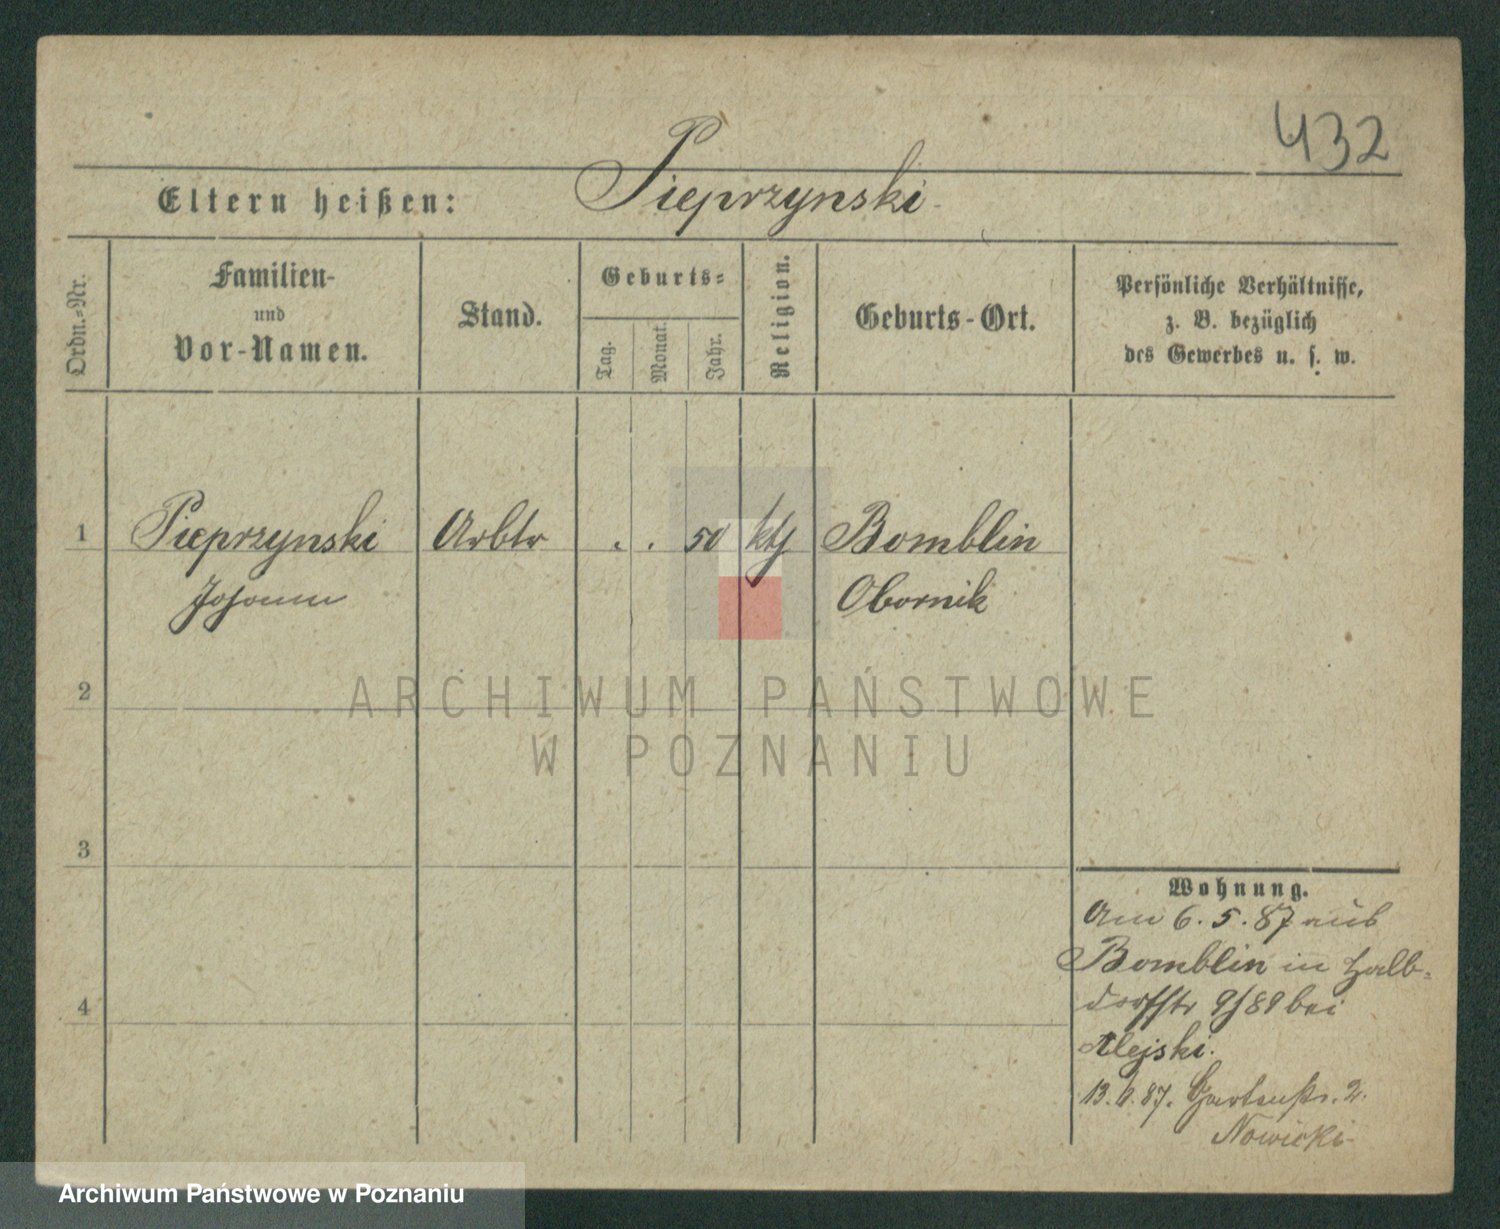 432
Eltern heißen: Pieprzynski
Ordn.-Nr.
Familien-
und
Vor-Namen.
Stand.
Geburts-
Tag.
Monat.
Jahr.
Religion.
Geburts-Ort.
Persönliche Verhältnisse,
z. B. bezüglich
des Gewerbes u. s. w.
1 Pieprzynski Arbtr . . 50 kth Bomblin
Johann Obornik
2
ARCHIWUM PAŃSTWOWE
W POZNANIU
3
4
Wohnung.
Am 6.5.87 aus
Bomblin in Halb-
dorfstr 9/89 bei
Alejski.
87. Gartenstr. 2.
Nowicki
Archiwum Państwowe w Poznaniu